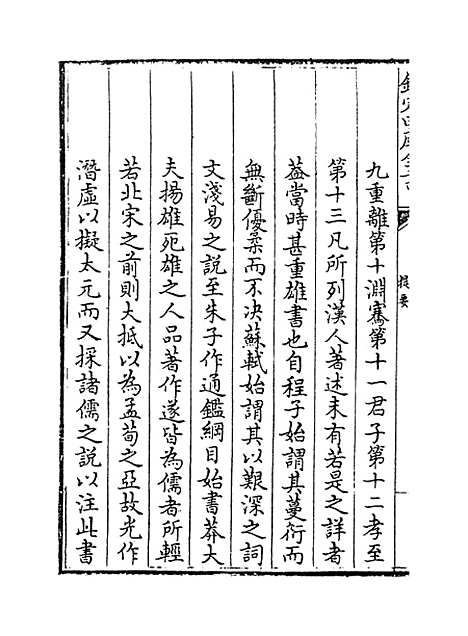 欽定四庫全書
提要
九重離第十淵騫第十一君子第十二孝至
第十三凡所列漢人著述未有若是之詳者
葢當時甚重雄書也自程子始謂其蔓衍而
無斷優柔而不决蘇軾始謂其以艱深之詞
文淺易之說至朱子作通鑑綱目始書莽大
夫揚雄死雄之人品著作遂皆為儒者所輕
若北宋之前則大抵以為孟荀之亞故光作
潛虚以擬太元而又採諸儒之說以注此書